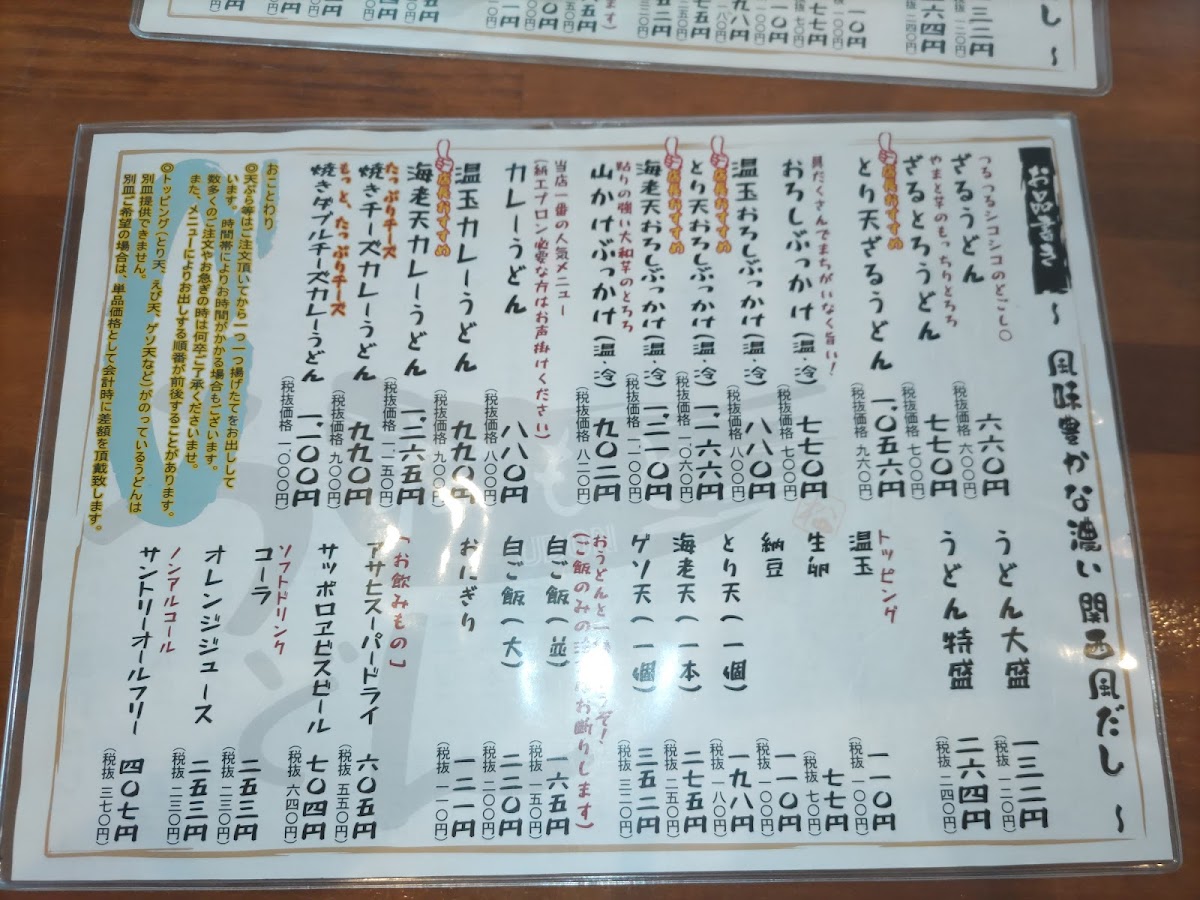 お品書き ～ 風味豊かな濃い関西風だし ～
つるつるシコシコのどごし〇
ざるうどん 六六〇円
(税抜価格 六〇〇円)
やまと芋のもっちりとろろ
ざるとろうどん 七七〇円
(税抜価格 七〇〇円)
店長おすすめ
とり天ざるうどん 一、〇五六円
(税抜価格 九六〇円)
具だくさんでまちがいなく旨い!
おろしぶっかけ(温・冷) 七七〇円
(税抜価格 七〇〇円)
温玉おろしぶっかけ(温・冷) 八八〇円
(税抜価格 八〇〇円)
店長おすすめ
とり天おろしぶっかけ(温・冷) 一、一六六円
(税抜価格 一、〇六〇円)
店長おすすめ
海老天おろしぶっかけ(温・冷) 一、二一〇円
(税抜価格 一、一〇〇円)
粘りの強い大和芋のとろろ
山かけぶっかけ(温・冷) 九〇二円
(税抜価格 八二〇円)
当店一番の人気メニュー
(紙エプロン必要な方はお声掛けください)
カレーうどん 八八〇円
(税抜価格 八〇〇円)
温玉カレーうどん 九九〇円
(税抜価格 九〇〇円)
店長おすすめ
海老天カレーうどん 一、二六五円
(税抜価格 一、一五〇円)
たっぷりチーズ
焼きチーズカレーうどん 九九〇円
(税抜価格 九〇〇円)
もっと、たっぷりチーズ
焼きダブルチーズカレーうどん 一、一〇〇円
(税抜価格 一、〇〇〇円)
おことわり
◎天ぷら等はご注文頂いてから一つ一つ揚げたてをお出しして
います。時間帯によりお時間がかかる場合もございます。
数多くのご注文やお急ぎの時は何卒ご了承くださいませ。
また、メニューによりお出しする順番が前後することがあります。
◎トッピング(とり天、えび天、ゲソ天など)がのっているうどんは
別皿提供できません。
別皿ご希望の場合は、単品価格として会計時に差額を頂戴致します。
うどん大盛 一三二円
(税抜 一二〇円)
うどん特盛 二六四円
(税抜 二四〇円)
トッピング
温玉 一一〇円
(税抜 一〇〇円)
生卵 七七円
(税抜 七〇円)
納豆 一一〇円
(税抜 一〇〇円)
とり天(一個) 一九八円
(税抜 一八〇円)
海老天(一本) 二七五円
(税抜 二五〇円)
ゲソ天(一個) 三五二円
(税抜 三二〇円)
おうどんと一
うぞ!
(ご飯のみの
お断りします)
白ご飯(並) 一六五円
(税抜 一五〇円)
白ご飯(大) 二二〇円
(税抜 二〇〇円)
おにぎり 一二一円
(税抜 一一〇円)
「お飲みもの」
アサヒスーパードライ 六〇五円
(税抜 五五〇円)
サッポロヱビスビール 七〇四円
(税抜 六四〇円)
ソフトドリンク
コーラ 二五三円
(税抜 二三〇円)
オレンジジュース 二五三円
(税抜 二三〇円)
ノンアルコール
サントリーオールフリー 四〇七円
(税抜 三七〇円)